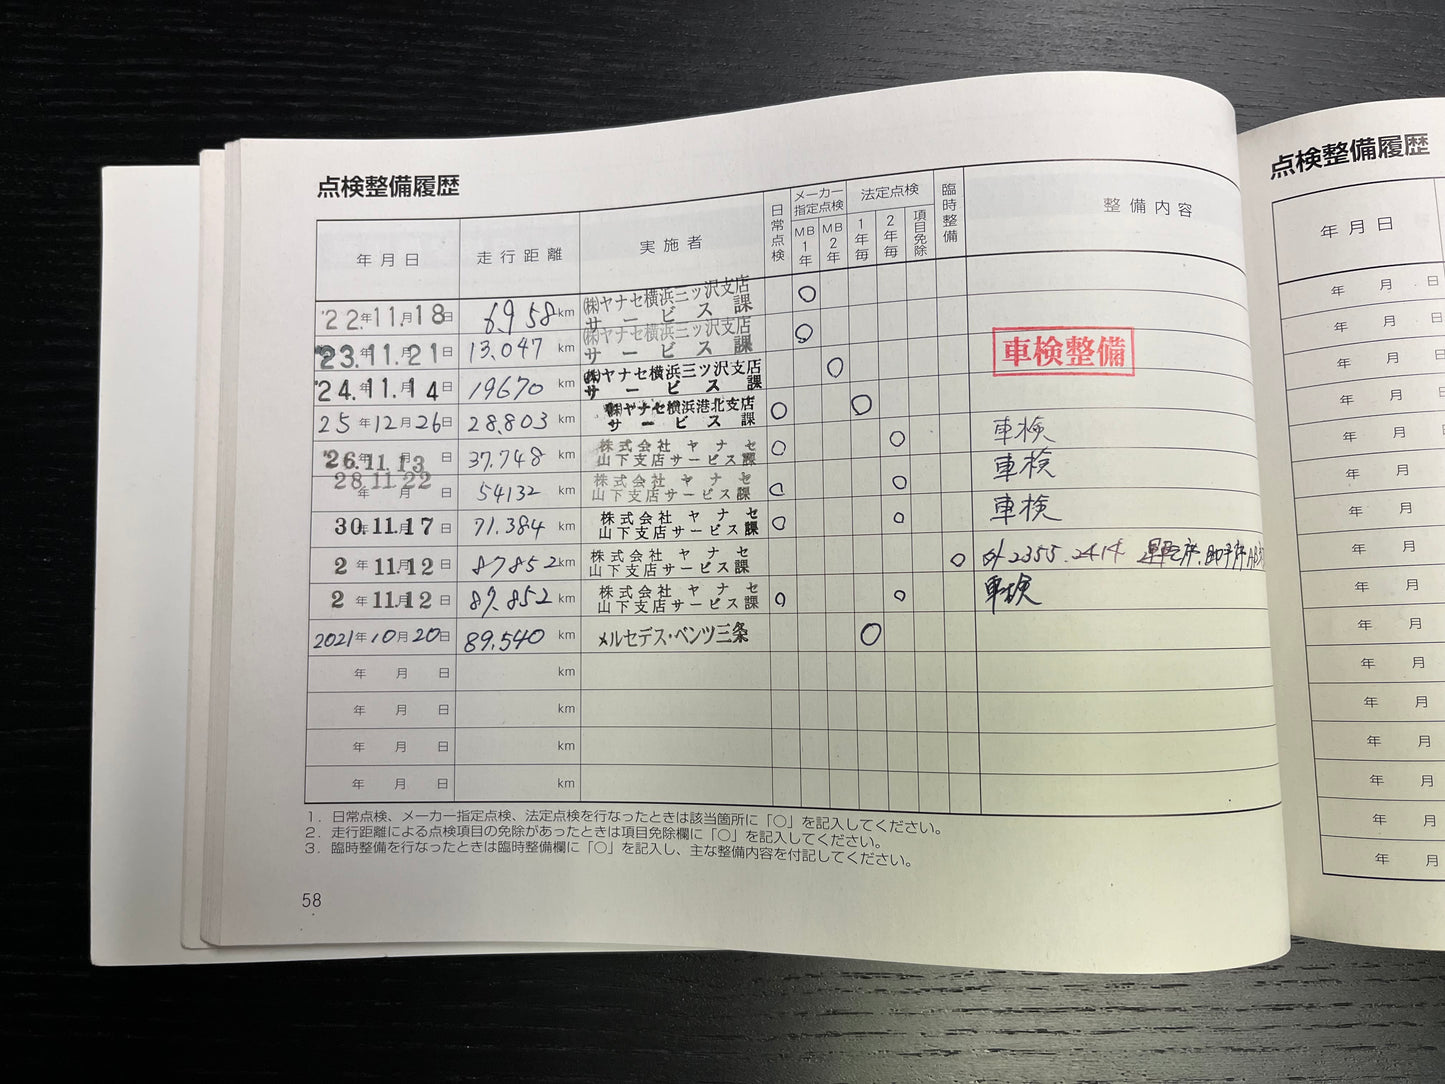 点検整備履歴
年月日 走行距離 実施者 日常点検 メーカー指定点検 MB1年 MB2年 法定点検 1年毎 2年毎 項目免除 臨時整備 整備内容
'22.年11.月18日 6958km ㈱ヤナセ横浜三ツ沢支店 サービス課 ○
'23.年11.月21日 13.047km ㈱ヤナセ横浜三ツ沢支店 サービス課 ○ 車検整備
'24.年11.月14日 19670km ㈱ヤナセ横浜三ツ沢支店 サービス課 ○
25年12月26日 28.803km ㈱ヤナセ横浜港北支店 サービス課 ○ ○
'26.年11.月13日 37.748km 株式会社ヤナセ 山下支店サービス課 ○ ○ 車検
28.11.22年月日 54132km 株式会社ヤナセ 山下支店サービス課 ○ ○ 車検
30年11.月17日 71.384km 株式会社ヤナセ 山下支店サービス課 ○ ○ 車検
2年11.月12日 87852km 株式会社ヤナセ 山下支店サービス課 ○ 2355.2414
2年11.月12日 87.852km 株式会社ヤナセ 山下支店サービス課 ○ ○ 車検
2021年10月20日 89.540km メルセデス・ベンツ三条 ○
年月日 km
年月日 km
年月日 km
年月日 km
1．日常点検、メーカー指定点検、法定点検を行なったときは該当箇所に「○」を記入してください。
2．走行距離による点検項目の免除があったときは項目免除欄に「○」を記入してください。
3．臨時整備を行なったときは臨時整備欄に「○」を記入し、主な整備内容を付記してください。
58
点検整備履歴
年月日
年月日
年月日
年月
年月
年月
年月
年月
年月
年月
年月
年月
年月
年月
年月
年月